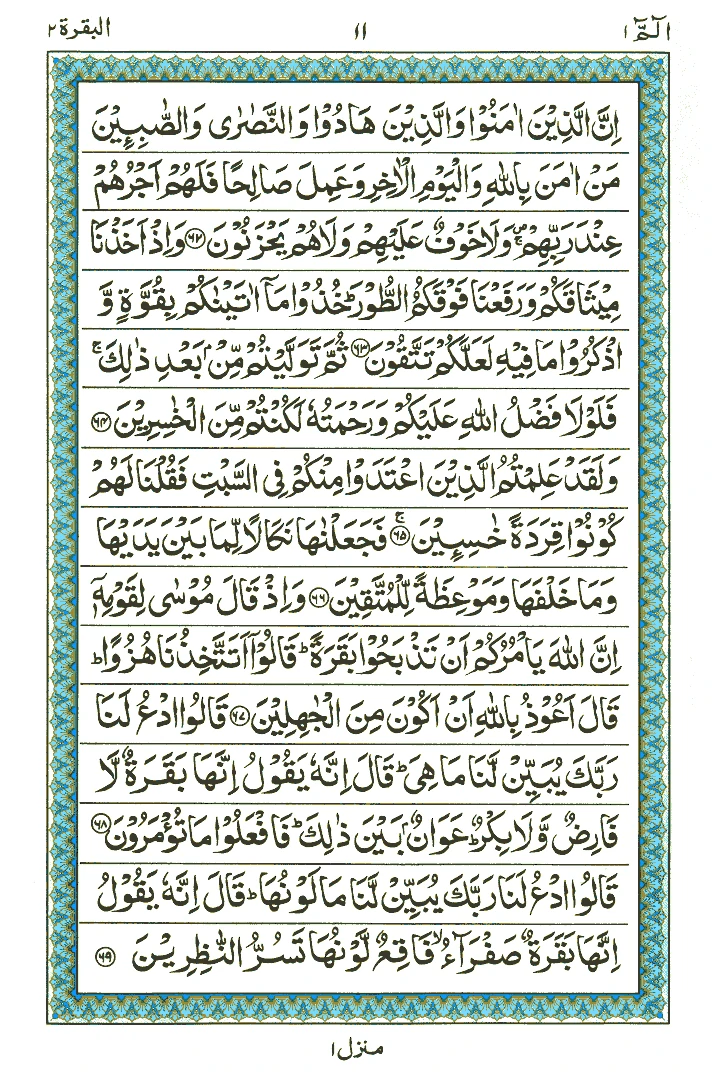 الٓمّٓ ١ ١١ البقرة ٢
اِنَّ الَّذِیْنَ اٰمَنُوْا وَالَّذِیْنَ هَادُوْا وَالنَّصٰرٰی وَالصّٰبِـِٕیْنَ
مَنْ اٰمَنَ بِاللّٰهِ وَالْیَوْمِ الْاٰخِرِ وَعَمِلَ صَالِحًا فَلَهُمْ اَجْرُهُمْ
عِنْدَ رَبِّهِمْ ۪ۚ وَلَا خَوْفٌ عَلَیْهِمْ وَلَا هُمْ یَحْزَنُوْنَ ﴿۶۲﴾ وَاِذْ اَخَذْنَا
مِیْثَاقَكُمْ وَرَفَعْنَا فَوْقَكُمُ الطُّوْرَ ؕ خُذُوْا مَاۤ اٰتَیْنٰكُمْ بِقُوَّةٍ وَّ
اذْكُرُوْا مَا فِیْهِ لَعَلَّكُمْ تَتَّقُوْنَ ﴿۶۳﴾ ثُمَّ تَوَلَّیْتُمْ مِّنْۢ بَعْدِ ذٰلِكَ ۚ
فَلَوْلَا فَضْلُ اللّٰهِ عَلَیْكُمْ وَرَحْمَتُهٗ لَكُنْتُمْ مِّنَ الْخٰسِرِیْنَ ﴿۶۴﴾
وَلَقَدْ عَلِمْتُمُ الَّذِیْنَ اعْتَدَوْا مِنْكُمْ فِی السَّبْتِ فَقُلْنَا لَهُمْ
كُوْنُوْا قِرَدَةً خٰسِـِٕیْنَ ۚ﴿۶۵﴾ فَجَعَلْنٰهَا نَكَالًا لِّمَا بَیْنَ یَدَیْهَا
وَمَا خَلْفَهَا وَمَوْعِظَةً لِّلْمُتَّقِیْنَ ﴿۶۶﴾ وَاِذْ قَالَ مُوْسٰی لِقَوْمِهٖۤ
اِنَّ اللّٰهَ یَاْمُرُكُمْ اَنْ تَذْبَحُوْا بَقَرَةً ؕ قَالُوْۤا اَتَتَّخِذُنَا هُزُوًا ؕ
قَالَ اَعُوْذُ بِاللّٰهِ اَنْ اَكُوْنَ مِنَ الْجٰهِلِیْنَ ﴿۶۷﴾ قَالُوا ادْعُ لَنَا
رَبَّكَ یُبَیِّنْ لَّنَا مَا هِیَ ؕ قَالَ اِنَّهٗ یَقُوْلُ اِنَّهَا بَقَرَةٌ لَّا
فَارِضٌ وَّلَا بِكْرٌ ؕ عَوَانٌۢ بَیْنَ ذٰلِكَ ؕ فَافْعَلُوْا مَا تُؤْمَرُوْنَ ﴿۶۸﴾
قَالُوا ادْعُ لَنَا رَبَّكَ یُبَیِّنْ لَّنَا مَا لَوْنُهَا ؕ قَالَ اِنَّهٗ یَقُوْلُ
اِنَّهَا بَقَرَةٌ صَفْرَآءُ ۙ فَاقِعٌ لَّوْنُهَا تَسُرُّ النّٰظِرِیْنَ ﴿۶۹﴾
منزل ١